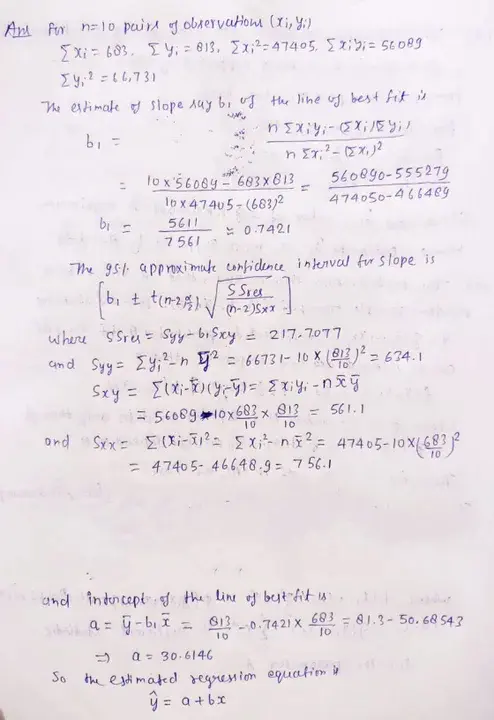 Ans for n=10 pairs of observations (xi, yi)
Σxi = 683, Σyi = 813, Σxi²=47405, Σxiyi= 56089
Σyi² = 66,731
The estimate of slope say b1 of the line of best fit is
b1 = nΣxiyi - (Σxi)(Σyi) / nΣxi² - (Σxi)²
= 10×56089 - 683×813 / 10×47405-(683)² = 560890-555279 / 474050-466489
b1 = 5611 / 7561 ≈ 0.7421
The 95% approximate confidence interval for slope is
[b1 ± t(n-2,α/2) √SSres / (n-2)Sxx]
where SSres = Syy - b1Sxy = 217.7077
and Syy = Σyi² - n ȳ² = 66731-10×(813/10)² = 634.1
Sxy = Σ(xi-x̄)(yi-ȳ) = Σxiyi - nx̄ȳ
= 56089-10×683/10 × 813/10 = 561.1
and Sxx = Σ(xi-x̄)² = Σxi² - nx̄² = 47405-10×(683/10)²
= 47405-46648.9 = 756.1
and intercept of the line of best fit is
a = ȳ - b1x̄ = 813/10 - 0.7421 × 683/10 = 81.3-50.68543
⇒ a = 30.6146
So the estimated regression equation is
ŷ = a+bx